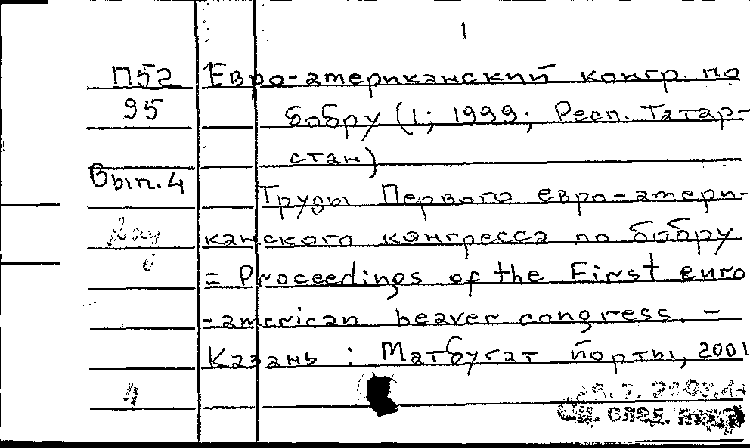 1
П52 Евро-американский конгр. по
95 бобру (1; 1999; Респ. Татар-
стан)
Вып.4
Труды Первого евро-амери-
канского конгресса по бобру
= Proceedings of the First euro
-american beaver congress. -
Казань : Матбугат йорты, 2001
См. след. карт